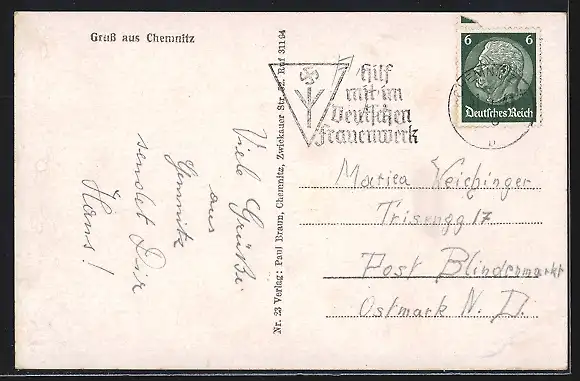 Gruß aus Chemnitz
Viele Grüße
aus
Chemnitz
sendet Dir
Hans!
Nr. 23 Verlag: Paul Braun, Chemnitz, Zwickauer Str. Ruf 311 94
Hilf
mit im
Deutschen
Frauenwerk
6 6
Deutsches Reich
b
Marica Weichinger
17
Post Blindenmarkt
Ostmark N. D.